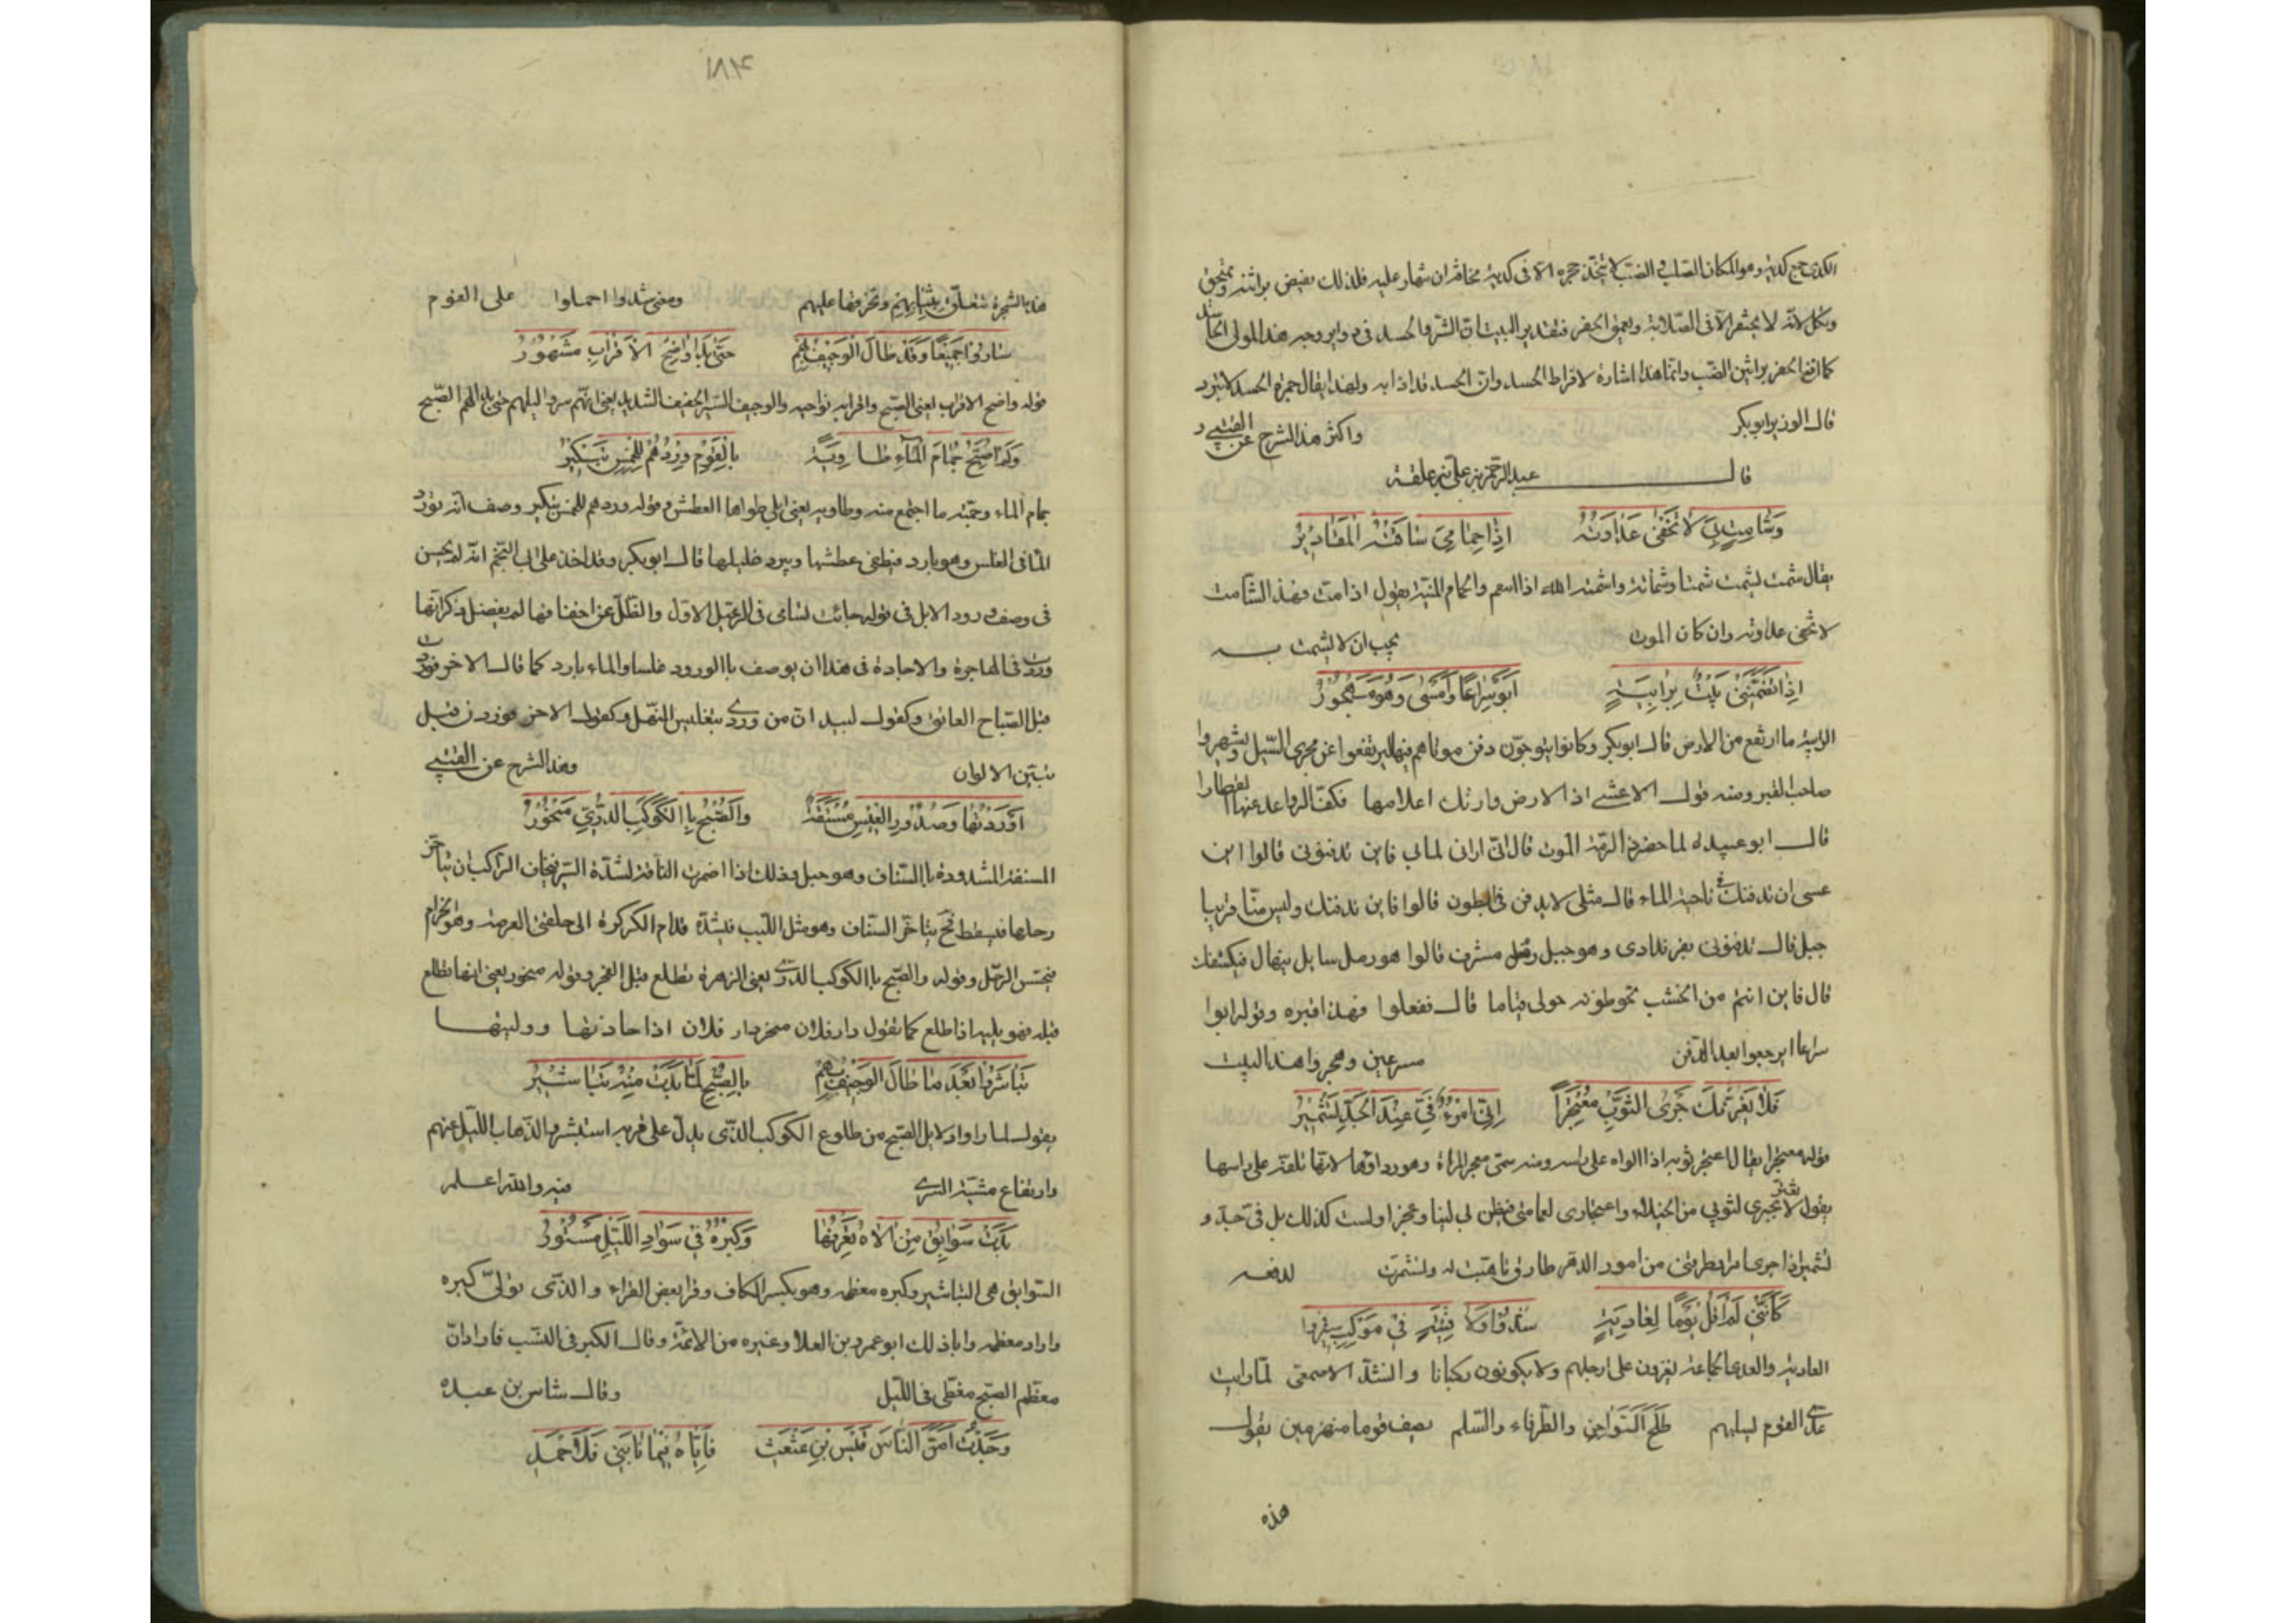 الكدى جمع كدية وهو المكان الصلب والضب لا يتخذ جحره الا فى كدية مخافة ان ينهار عليه فلذلك يفيض براثنه وينحق
وتكل لانه لا يحتفر الا فى الصلابة ويعمق الحفر فتقدير البيت ان الشر والحسد فى دوابر وجه هذا المولى الحاسد
كما افنى الحفر براثن الضب وانما هذا اشارة لافراط الحسد وان الحسد قد اذابه ولهذا يقال جمرة الحسد لا تبرد
قال الوزير ابو بكر واكثر هذا الشرح عن القتيبى
قال عبد الرحمن بن على بن علقمة
وَشَامِتٍ بِىَ لَا تَخْفَى عَدَاوَتُهُ اِذَا حِمَامِىَ سَاقَتْهُ الْمَقَادِيرُ
يقال شمت يشمت شمتا وشماتة واشمته الله اذا والحمام المنية يقول اذا مت فهذا الشامت
لا تخفى عداوته وان كان الموت يجب ان لا يشمت به
اِذَا تَضَمَّنَنِى بَيْتٌ بِرَابِيَةٍ اَبَوْا سِرَاعًا وَاَمْسَى وَهْوَ مَهْجُورُ
الرابية ما ارتفع من الارض قال ابو بكر وكانوا يتوخون دفن موتاهم فيها ليرتفعوا عن مجرى السيل ويشهروا
صاحب القبر ومنه قول الاعشى اذا الارض وارتك اعلامها فكف الرواعد عنها القطارا
قال ابو عبيدة لما حضر ذا الرمة الموت قال انى ارانى لمابى فاين تدفنونى قالوا اين
عسى ان ندفنك فى ناحية الماء قال مثلى لا يدفن فى البطون قالوا فاين ندفنك وليس منا قريبا
جبل قال تدفنونى بفرندادى وهو جبيل رمل مشرف قالوا هو رمل سايل ينهال فيكشفك
قال فاين انتم من الخشب تحوطونه حولى قياما قال ففعلوا فهذا قبره وقوله ابوا
سراعا اى رجعوا بعد الدفن مسرعين وهجروا هذا البيت
فَلَا يَغُرَّنْكَ جَرِّى الثَّوْبَ مُعْتَجِرًا اِنِّى امْرُؤٌ فِىَّ عِنْدَ الْجِدِّ تَشْمِيرُ
قوله معتجرا يقال اعتجر ثوبه اذا الواه على راسه ومنه سمى معجر المراة وهو رداؤها لانها تلفه على راسها
يقول لا تغتر بجرى لثوبى من الخيلاء واعتجارى لعمامتى فتظن بى لينا وعجزا ولست كذلك بل فى جد و
تشمير اذا جرى طرقنى من امور الدهر طارق تاهبت له وتشمرت لدفعه
كَاَنَّنِى لَمْ اَقُلْ يَوْمًا لِعَادِيَةٍ شُدُّوا وَلَا فِتْيَةٍ فِى مَوْكِبٍ سِيرُوا
العادية والعدى الجماعة يغزون على ارجلهم ولا يكونون ركبانا وانشد الاصمعى لما رايت
عدى القوم يسلبهم طَلْحُ الشَّوَاجِنِ والطرفاء والسلم يصف قوما منهزمين يقول
هذه
١٨٤
هذه الشجرة تتعلق بثيابهم وتخرقها عليهم ومعنى شدوا احملوا على القوم
سَارُوا جَمِيعًا وَقَدْ طَالَ الْوَجِيفُ بِهِمْ حَتَّى بَدَا وَاضِحُ الْاَقْرَابِ مَشْهُورُ
قوله واضح الاقراب يعنى الصبح واقرابه نواحيه والوجيف السير الخفيف الشديد يعنى انهم سروا ليلهم حتى بدا لهم الصبح
وَلَمْ اُصَبِّحْ جِمَامَ الْمَاءِ طَاوِيَةً بِالْقَوْمِ وِرْدُهُمُ لِلْخِمْسِ تَبْكِيرُ
جمام الماء وجمته ما اجتمع منه وطاوية يعنى ابلى طواها العطش وقوله وردهم للخمس تبكير وصف انه تورد
الما فى الغلس وهو بارد فيطفى عطشها ويبرد غليلها قال ابو بكر وقد اخذ على ابى النجم انه لم يحسن
فى وصف ورود الابل فى قوله جائت تسامى فى الرعيل الاول والظل عن اخفافها لم يفضل فذكر انها
وردت فى الهاجرة والاجادة فى هذا ان يوصف باالورود غلسا والماء بارد كما قال الاخر فوردت
قبل الصباح الفاتق وكقول لبيد ان من وردى تغليس النهل وكقول الاخر فوردن قبل
تبين الالوان وهذا الشرح عن القتيبى
اَوْرَدْتُهَا وَصُدُورُ الْعِيسِ مُسْنَفَةٌ وَالصُّبْحُ بِاالْكَوْكَبِ الدُّرِّىِّ مَنْحُورُ
المسنفة المشدودة باالسناف وهو حبل وذلك اذا اضمرت الناقة لشدة السير فيخاف الراكب ان يتاخر
رحلها فيسقط نحى يتاخر السناف وهو مثل اللبب فيشد قدام الكركرة الى حلقتى العرصة وهو الحزام
فيحبس الرحل وقوله والصبح باالكوكب الدرى يعنى الزهرة تطلع قبل الفجر وقوله منحور يعنى انها تطلع
قبله فهو يليها اذا طلع كما تقول دار فلان منحر دار فلان اذا حاذتها ووليتها
تَبَاشَرُوا بَعْدَ مَا طَالَ الْوَجِيفُ بِهِمْ بِالصُّبْحِ لَمَّا بَدَتْ مِنْهُ تَبَاشِيرُ
يقول لما راوا دلايل الصبح من طلوع الكوكب الذى يدل على قربه استبشروا لذهاب الليل عنهم
وارتفاع مشقة السرى فيه والله اعلم
بَدَتْ سَوَابِقُ مِنْ اُولَاهُ نَعْرِفُهَا وَكِبْرُهُ فِى سَوَادِ اللَّيْلِ مَسْتُورُ
السوابق هى التباشير وكبره معظمه وهو بكسر الكاف وقرا بعض القراء والذى تولى كبره
واراد معظمه وابا ذلك ابو عمرو بن العلا وغيره من الائمة وقال الكبر فى النسب فاراد ان
معظم الصبح مغطى فى الليل وقال شاس بن عبدة
وَجَدْتُ اَمَنَّ النَّاسِ قَيْسَ بْنَ عَثْعَثٍ فَاِيَّاهُ فِيمَا نَابَنِى فَلَاَحْمَدِ